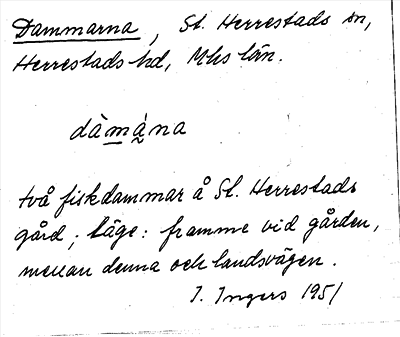 Dammarna, St. Herrestads sn,
Herrestads hd, Mhs län.
dàmạ́na
två fiskdammar å St. Herrestads
gård; läge: framme vid gården,
mellan denna och landsvägen.
I. Ingers 1951